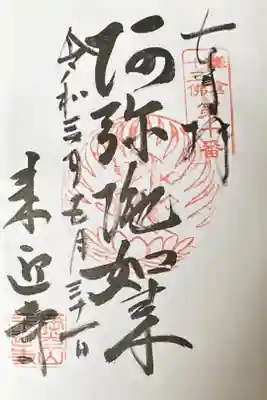 鎌倉十三佛第十番
阿弥陀如来
令和三年五月三十一日
来迎寺